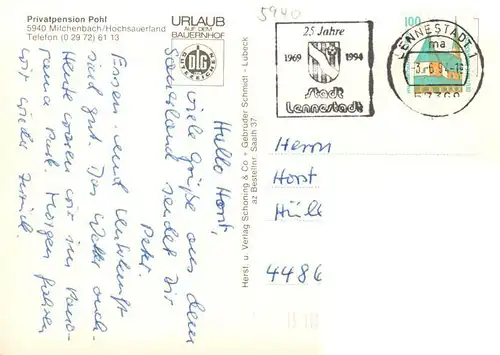 Privatpension Pohl
5940 Milchenbach/Hochsauerland
Telefon (0 29 72) 61 13
URLAUB
AUF DEM
BAUERNHOF
DLG
GÜTEZEICHEN
5940
25 Jahre
1969 1994
Stadt
Lennestadt
LENNESTADT 1
ma
57368
100
Hallo Horst,
viele Grüße aus dem
Sauerland sendet Dir
Peter.
Essen und Unterkunft
sind gut. Das Wetter auch.
Heute waren wir im Pano-
rama Park. Morgen fahren
wir wieder zurück.
Herst. u. Verlag Schöning & Co + Gebrüder Schmidt · Lübeck
az Bestellnr. Saalh 37
Herrn
Horst
Hüls
4486